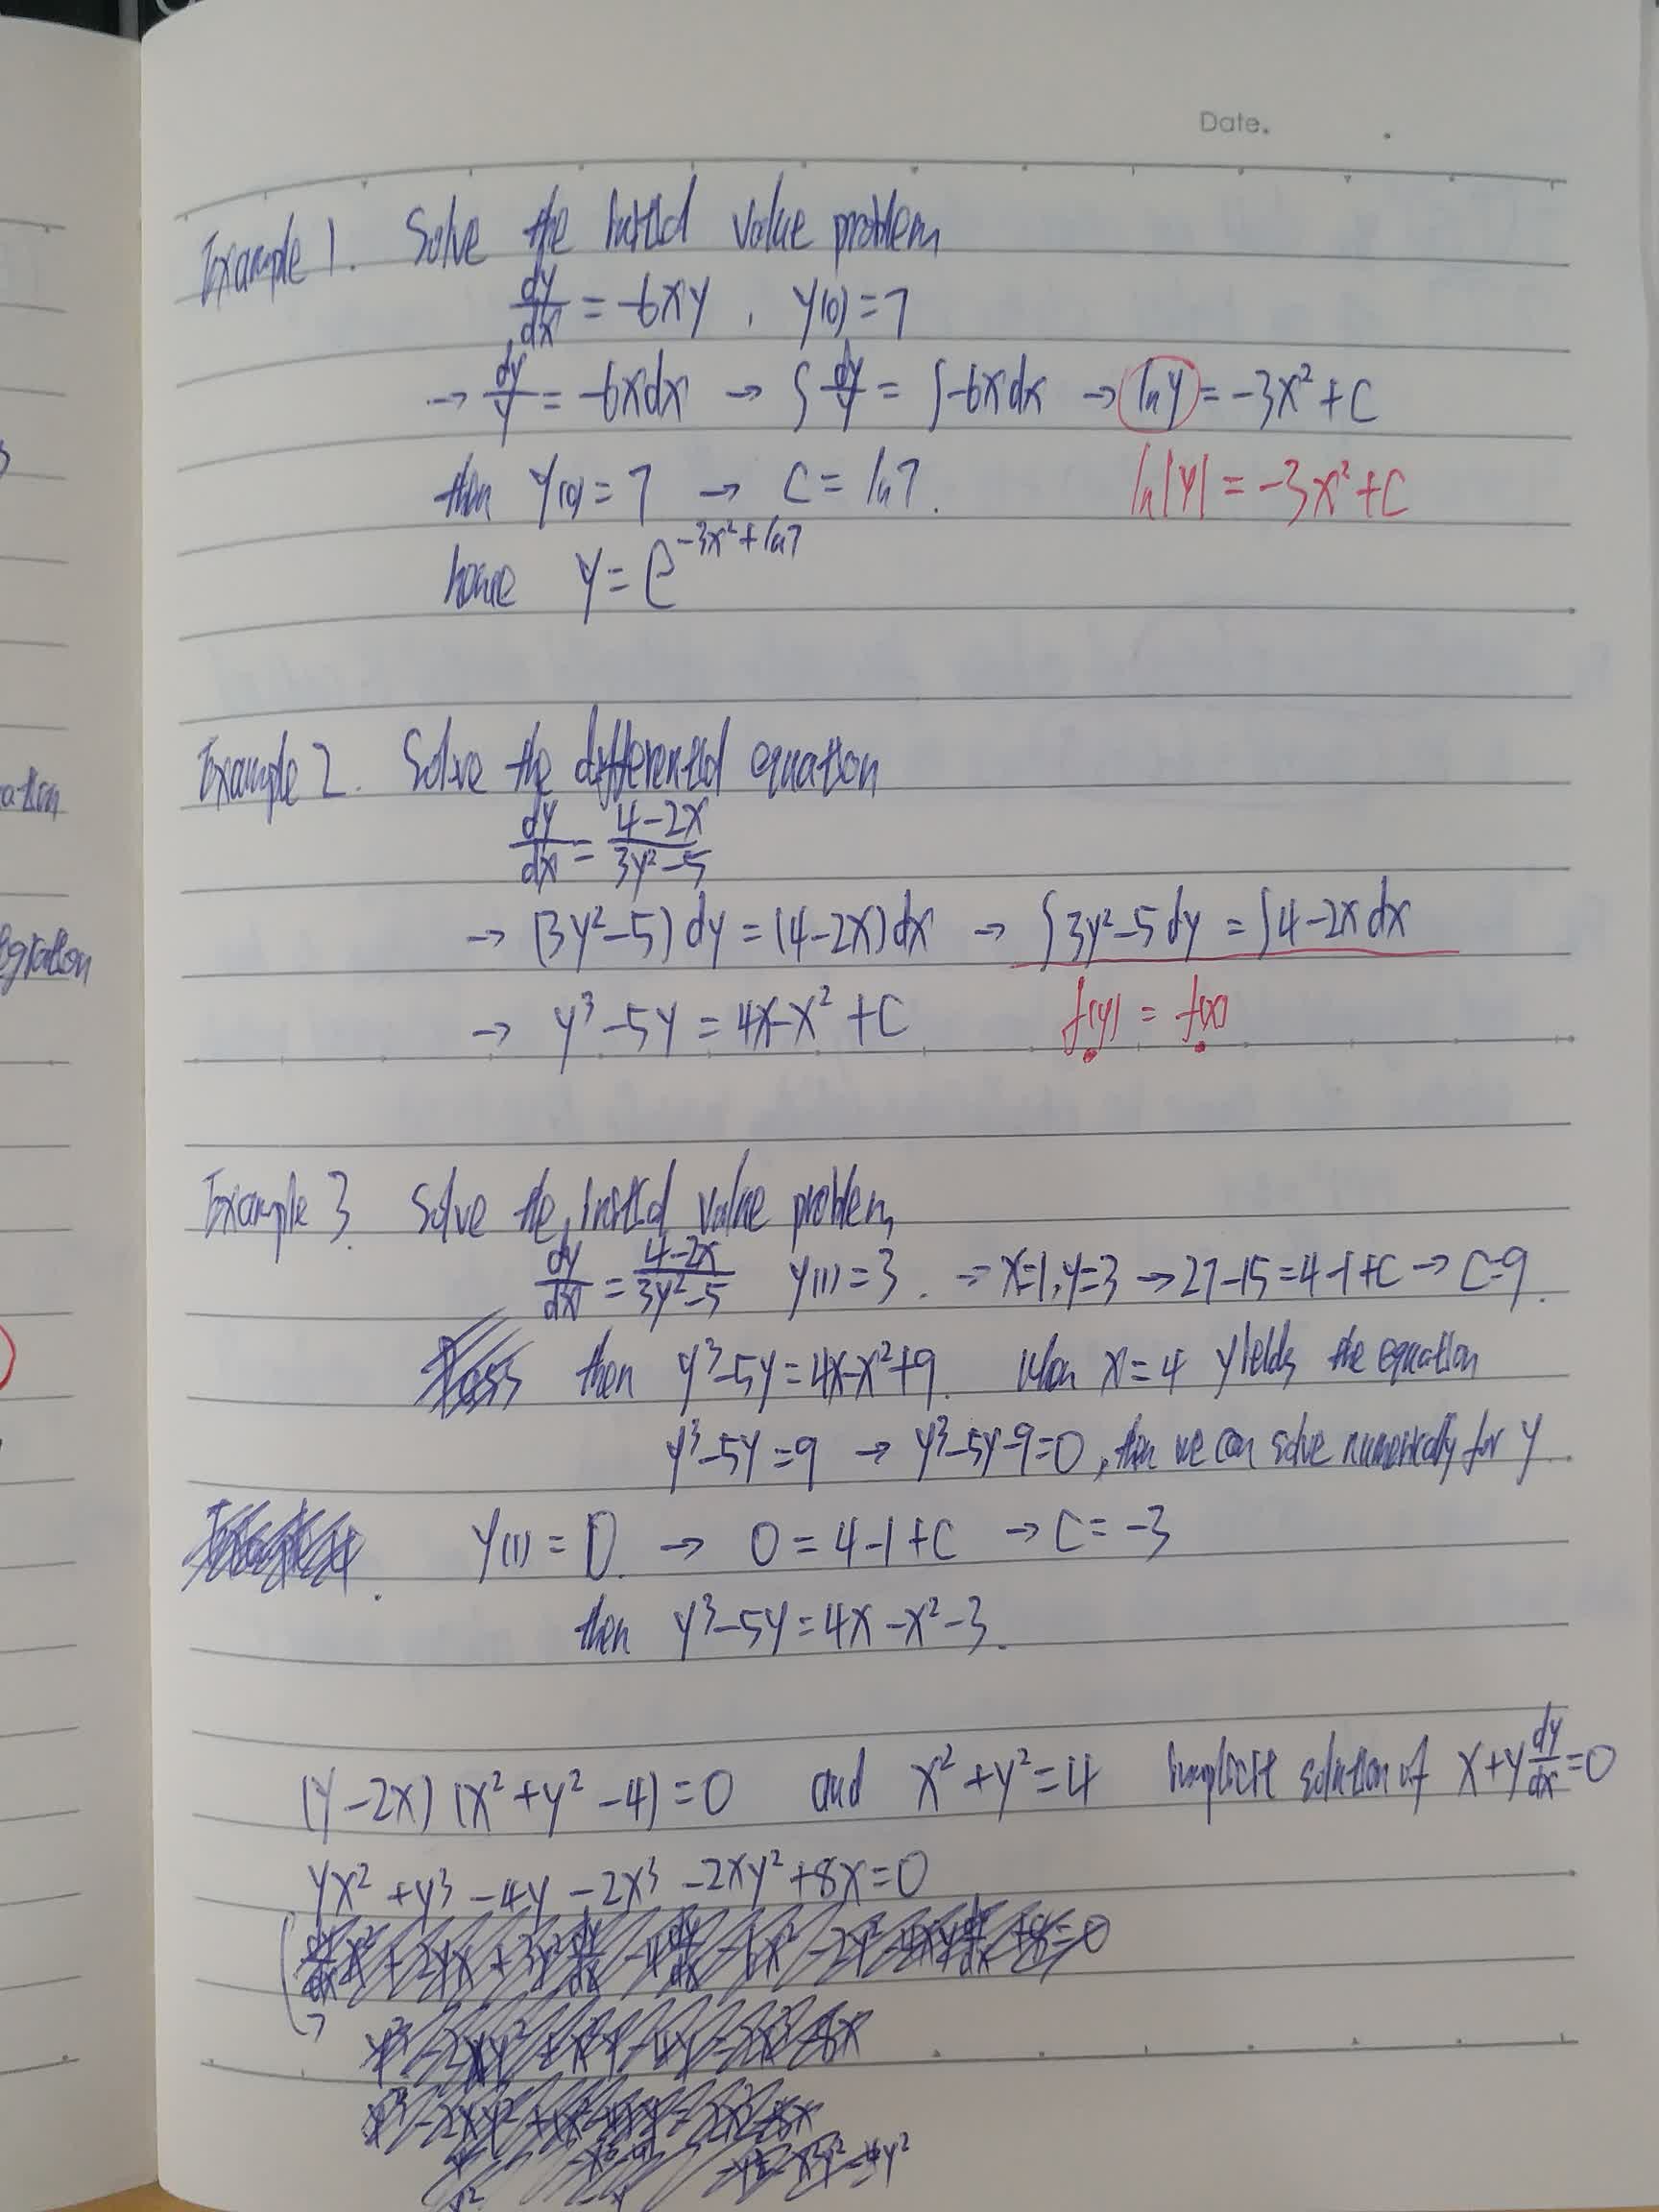 Date.
Example 1. Solve the initial value problem
dy/dx = -6xy , y(0) = 7
→ dy/y = -6xdx → ∫ dy/y = ∫-6xdx → ln y = -3x² + C
then y(0) = 7 → C = ln7. ln|y| = -3x² + C
hence y = e^(-3x²+ln7)
Example 2. Solve the differential equation
dy/dx = (4-2x)/(3y²-5)
→ (3y²-5)dy = (4-2x)dx → ∫3y²-5dy = ∫4-2xdx
→ y³-5y = 4x-x²+C f(y) = f(x)
Example 3. Solve the initial value problem,
dy/dx = (4-2x)/(3y²-5) y(1)=3. → x=1, y=3 → 27-15=4-1+C → C=9.
then y³-5y=4x-x²+9. when x=4 yields the equation
y³-5y=9 → y³-5y-9=0, then we can solve numerically for y.
y(1) = 0. → 0=4-1+C → C=-3
then y³-5y=4x-x²-3.
(y-2x)(x²+y²-4)=0 and x²+y²=4 implicit solution of x+y dy/dx=0
yx²+y³-4y-2x³-2xy²+8x=0
ation
egration